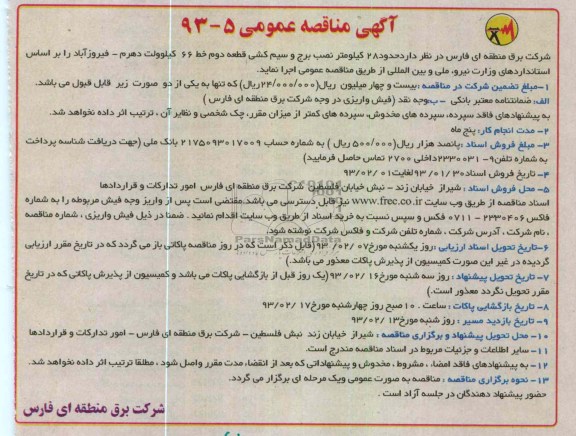 آگهی مناقصه عمومی ۵-۹۳
شرکت برق منطقه ای فارس در نظر دارد حدود ۲۸ کیلومتر نصب برج و سیم کشی قطعه دوم خط ۶۶ کیلوولت دهرم - فیروزآباد را بر اساس
استانداردهای وزارت نیرو، ملی و بین المللی از طریق مناقصه عمومی اجرا نماید.
۱-مبلغ تضمین شرکت در مناقصه :بیست و چهار میلیون ریال(۲۴/۰۰۰/۰۰۰ریال) که تنها به یکی از دو صورت زیر قابل قبول می باشد.
الف: ضمانتنامه معتبر بانکی -ب:وجه نقد (فیش واریزی در وجه شرکت برق منطقه ای فارس )
به پیشنهادهای فاقد سپرده، سپرده های مخدوش، سپرده های کمتر از میزان مقرر، چک شخصی و نظایر آن ، ترتیب اثر داده نخواهد شد.
۲-مدت انجام کار: پنج ماه
۳-مبلغ فروش اسناد :پانصد هزار ریال(۵۰۰/۰۰۰ریال ) به شماره حساب ۲۱۷۵۰۹۳۰۱۷۰۰۹ بانک ملی (جهت دریافت شناسه پرداخت
به شماره تلفن۹-۲۳۳۰۰۳۱داخلی ۲۷۰۰ تماس حاصل فرمایید)
۴-تاریخ فروش اسناد :۹۳/۰۱/۳۰لغایت۹۳/۰۲/۰۱
۵-محل فروش اسناد : شیراز خیابان زند - نبش خیابان فلسطین- شرکت برق منطقه ای فارس امور تدارکات و قراردادها
اسناد مناقصه از طریق وب سایت www.frec.co.ir نیز قابل دسترسی می باشد.مقتضی است پس از واریز وجه فیش مربوطه را به شماره
فاکس ۲۳۳۰۴۰۶-۰۷۱۱ فکس و سپس نسبت به خرید اسناد از طریق وب سایت اقدام نمائید . ضمنا در ذیل فیش واریزی ، شماره مناقصه
، نام شرکت ، آدرس شرکت ، شماره تلفن شرکت و فاکس شرکت نوشته شود.
۶-تاریخ تحویل اسناد ارزیابی :روز یکشنبه مورخ۹۳/۰۲/۰۷(قابل ذکر است که در روز مناقصه پاکاتی باز می گردد که در تاریخ مقرر ارزیابی
گردیده در غیر این صورت کمیسیون از پذیرش پاکات معذور می باشد.)
۷-تاریخ تحویل پیشنهاد : روز سه شنبه مورخ۹۳/۰۲/۱۶(یک روز قبل از بازگشایی پاکات می باشد و کمیسیون از پذیرش پاکاتی که در تاریخ
مقرر تحویل نگردد معذور است.)
۸-تاریخ بازگشایی پاکات : ساعت ۱۰ صبح روز چهارشنبه مورخ۹۳/۰۲/۱۷
۹-تاریخ بازدید مسیر : روز شنبه مورخ۹۳/۰۲/۱۳
۱۰-محل تحویل پیشنهاد و برگزاری مناقصه : شیراز خیابان زند نبش فلسطین - شرکت برق منطقه ای فارس - امور تدارکات و قراردادها
۱۱-سایر اطلاعات و جزئیات مربوط در اسناد مناقصه مندرج است.
۱۲-به پیشنهادهای فاقد امضاء ، مشروط ، مخدوش و پیشنهاداتی که بعد از انقضاء مدت مقرر واصل شود ، مطلقا ترتیب اثر داده نخواهد شد.
۱۳-نحوه برگزاری مناقصه : مناقصه به صورت عمومی ویک مرحله ای برگزار می گردد.
حضور پیشنهاد دهندگان در جلسه آزاد است .
شرکت برق منطقه ای فارس
ParsNamadData